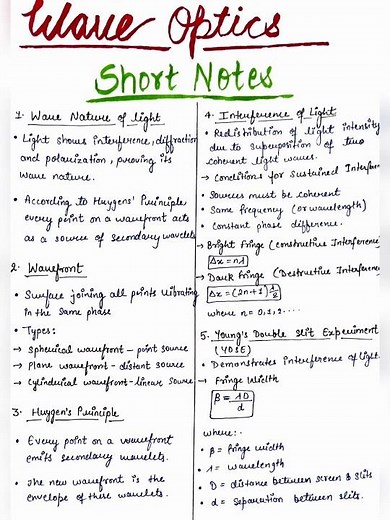 Wave Optics
Short Notes
1. Wave Nature of light
• Light shows interference, diffraction
and polarization, proving its
wave nature.
• According to Huygens' Principle
every point on a wavefront acts
as a source of secondary wavelets
2. Wavefront
• Surface joining all points vibrating
in the same phase
• Types:
→ Spherical wavefront - point source
→ Plane wavefront - distant source
→ Cylindrical wavefront - linear source
3. Huygen's Principle
• Every point on a wavefront
emits secondary wavelets.
• The new wavefront is the
envelope of these wavelets.
4. Interference of Light
• Redistribution of light intensity
due to superposition of two
coherent light waves.
→ Conditions for Sustained Interferen
• Sources must be coherent
• Same frequency (or wavelength)
• Constant phase difference.
→ Bright Fringe (constructive Interference
Δx = nλ
→ Dark Fringe (Destructive Interference
Δx = (2n+1) λ/2
where n = 0,1,2....
5. Young's Double Slit Experiment
(YDSE)
• Demonstrates interference of light.
→ Fringe Width
β = λD/d
where:-
• β = fringe width
• λ = wavelength
• D = distance between screen & slits
• d = separation between slits.